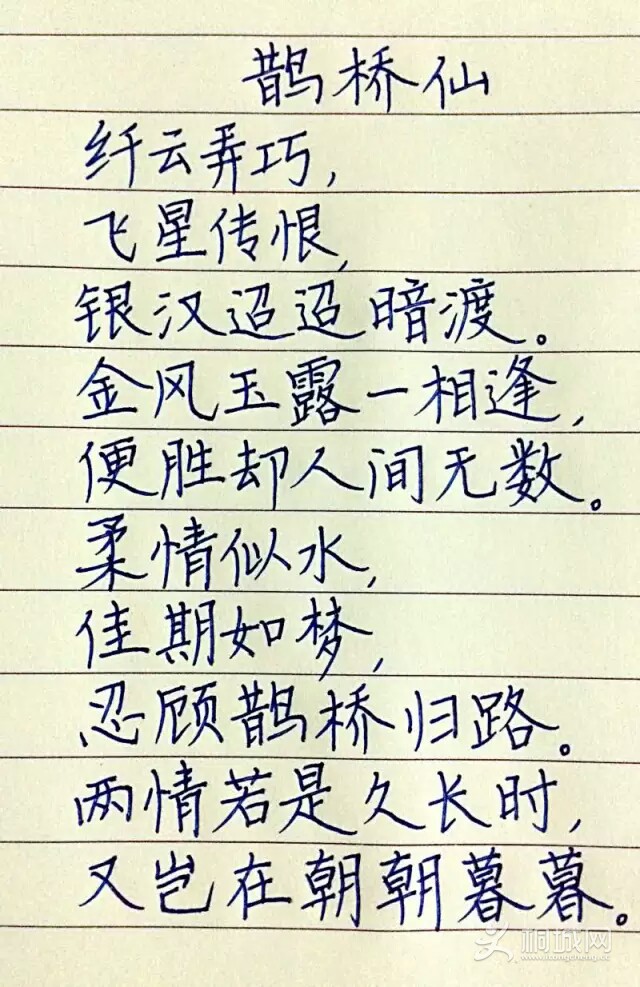 鹊桥仙
纤云弄巧，
飞星传恨，
银汉迢迢暗渡。
金风玉露一相逢，
便胜却人间无数。
柔情似水，
佳期如梦，
忍顾鹊桥归路。
两情若是久长时，
又岂在朝朝暮暮。
桐城网
www.itongcheng.cc